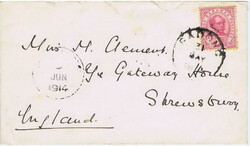 Miss M. Clement.
Ye Gateway House
Shrewsbury.
England.
JUN
1914